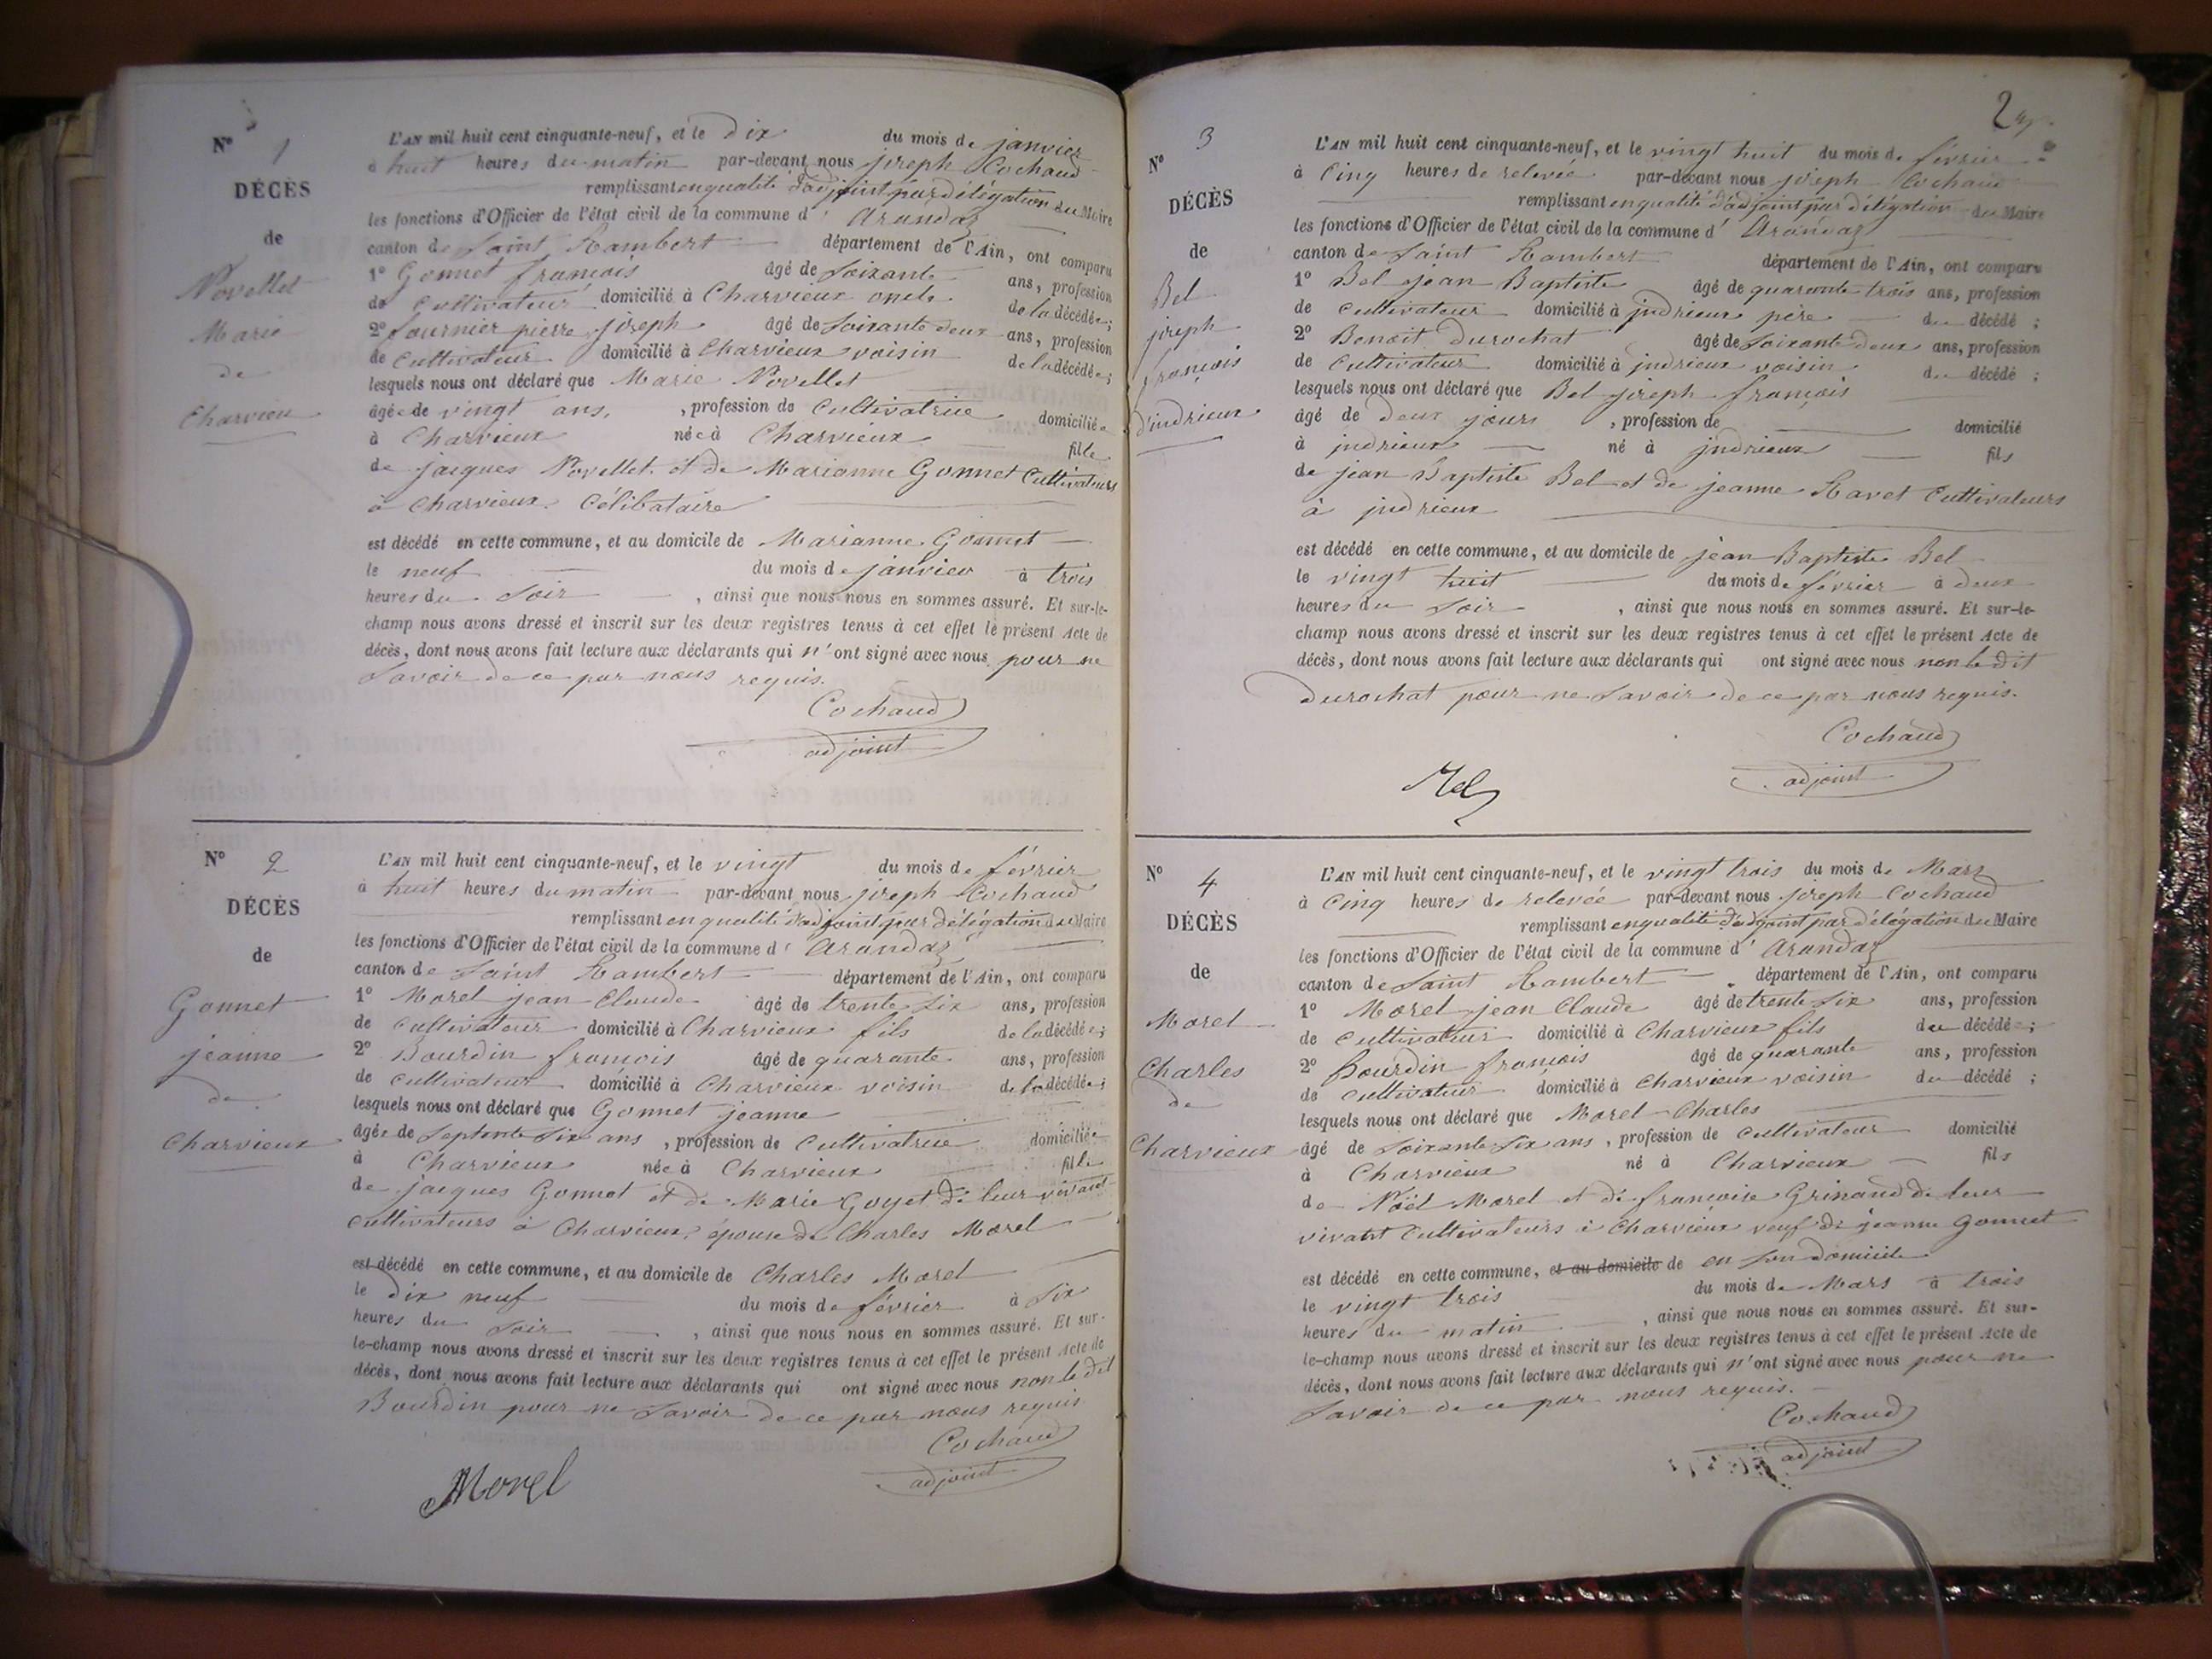 N° 1
DÉCÈS
de
Novellet
Marie
de
Charvieu
L'AN mil huit cent cinquante-neuf, et le dix du mois de janvier
à huit heures du matin par-devant nous joseph Cochaud
remplissant en qualité d'adjoint par délégation du Maire
les fonctions d'Officier de l'état civil de la commune d' Arandaz
canton de Saint Rambert département de l'Ain, ont comparu
1° Gonnet françois âgé de Soixante ans, profession
de Cultivateur domicilié à Charvieux oncle de la décédée;
2° fournier pierre joseph âgé de Soixante deux ans, profession
de Cultivateur domicilié à Charvieux voisin de la décédée;
lesquels nous ont déclaré que Marie Novellet
âgée de vingt ans, profession de Cultivatrice domiciliée
à Charvieux née à Charvieux fille
de jacques Novellet et de Marianne Gonnet Cultivateurs
à Charvieux Célibataire
est décédé en cette commune, et au domicile de Marianne Gonnet
le neuf du mois de janvier à trois
heures du Soir, ainsi que nous nous en sommes assuré. Et sur-le-
champ nous avons dressé et inscrit sur les deux registres tenus à cet effet le présent Acte de
décès, dont nous avons fait lecture aux déclarants qui n'ont signé avec nous pour ne
Savoir de ce par nous requis.
Cochaud
adjoint
N° 2
DÉCÈS
de
Gonnet
jeanne
de
Charvieux
L'AN mil huit cent cinquante-neuf, et le vingt du mois de février
à huit heures du matin par-devant nous joseph Cochaud
remplissant en qualité d'adjoint par délégation du Maire
les fonctions d'Officier de l'état civil de la commune d' Arandaz
canton de Saint Rambert département de l'Ain, ont comparu
1° Morel jean Claude âgé de trente Six ans, profession
de Cultivateur domicilié à Charvieux fils de la décédée;
2° Bourdin françois âgé de quarante ans, profession
de Cultivateur domicilié à Charvieux voisin de la décédée;
lesquels nous ont déclaré que Gonnet jeanne
âgée de Septante Six ans, profession de Cultivatrice domiciliée
à Charvieux née à Charvieux fille
de jacques Gonnet et de Marie Goyet de leur vivant
Cultivateurs à Charvieux, épouse de Charles Morel
est décédé en cette commune, et au domicile de Charles Morel
le Dix neuf du mois de février à Six
heures du Soir, ainsi que nous nous en sommes assuré. Et sur-
le-champ nous avons dressé et inscrit sur les deux registres tenus à cet effet le présent Acte de
décès, dont nous avons fait lecture aux déclarants qui ont signé avec nous non le dit
Bourdin pour ne Savoir de ce par nous requis
Cochaud
adjoint
Morel
2
N° 3
DÉCÈS
de
Bel
joseph
françois
d'indrieux
L'AN mil huit cent cinquante-neuf, et le vingt huit du mois de février
à Cinq heures de relevée par-devant nous joseph Cochaud
remplissant en qualité d'adjoint par délégation du Maire
les fonctions d'Officier de l'état civil de la commune d' Arandaz
canton de Saint Rambert département de l'Ain, ont comparu
1° Bel jean Baptiste âgé de quarante trois ans, profession
de Cultivateur domicilié à indrieux père du décédé;
2° Benoit Durochat âgé de Soixante deux ans, profession
de Cultivateur domicilié à indrieux voisin du décédé;
lesquels nous ont déclaré que Bel joseph françois
âgé de deux jours, profession de domicilié
à indrieux né à indrieux fils
de jean Baptiste Bel et de jeanne Ravet Cultivateurs
à indrieux
est décédé en cette commune, et au domicile de jean Baptiste Bel
le vingt huit du mois de février à deux
heures du Soir, ainsi que nous nous en sommes assuré. Et sur-le-
champ nous avons dressé et inscrit sur les deux registres tenus à cet effet le présent Acte de
décès, dont nous avons fait lecture aux déclarants qui ont signé avec nous non le dit
Durochat pour ne Savoir de ce par nous requis.
Cochaud
adjoint
Bel
N° 4
DÉCÈS
de
Morel
Charles
de
Charvieux
L'AN mil huit cent cinquante-neuf, et le vingt trois du mois de Mars
à Cinq heures de relevée par-devant nous joseph Cochaud
remplissant en qualité d'adjoint par délégation du Maire
les fonctions d'Officier de l'état civil de la commune d' Arandaz
canton de Saint Rambert département de l'Ain, ont comparu
1° Morel jean Claude âgé de trente Six ans, profession
de Cultivateur domicilié à Charvieux fils du décédé;
2° Bourdin françois âgé de quarante ans, profession
de Cultivateur domicilié à Charvieux voisin du décédé;
lesquels nous ont déclaré que Morel Charles
âgé de Soixante Six ans, profession de Cultivateur domicilié
à Charvieux né à Charvieux fils
de Noël Morel et de françoise Grinand de leur
vivant Cultivateurs à Charvieux veuf de jeanne Gonnet
est décédé en cette commune, et au domicile de en Son domicile
le vingt trois du mois de Mars à trois
heures du matin, ainsi que nous nous en sommes assuré. Et sur-
le-champ nous avons dressé et inscrit sur les deux registres tenus à cet effet le présent Acte de
décès, dont nous avons fait lecture aux déclarants qui n'ont signé avec nous pour ne
Savoir de ce par nous requis.
Cochaud
adjoint